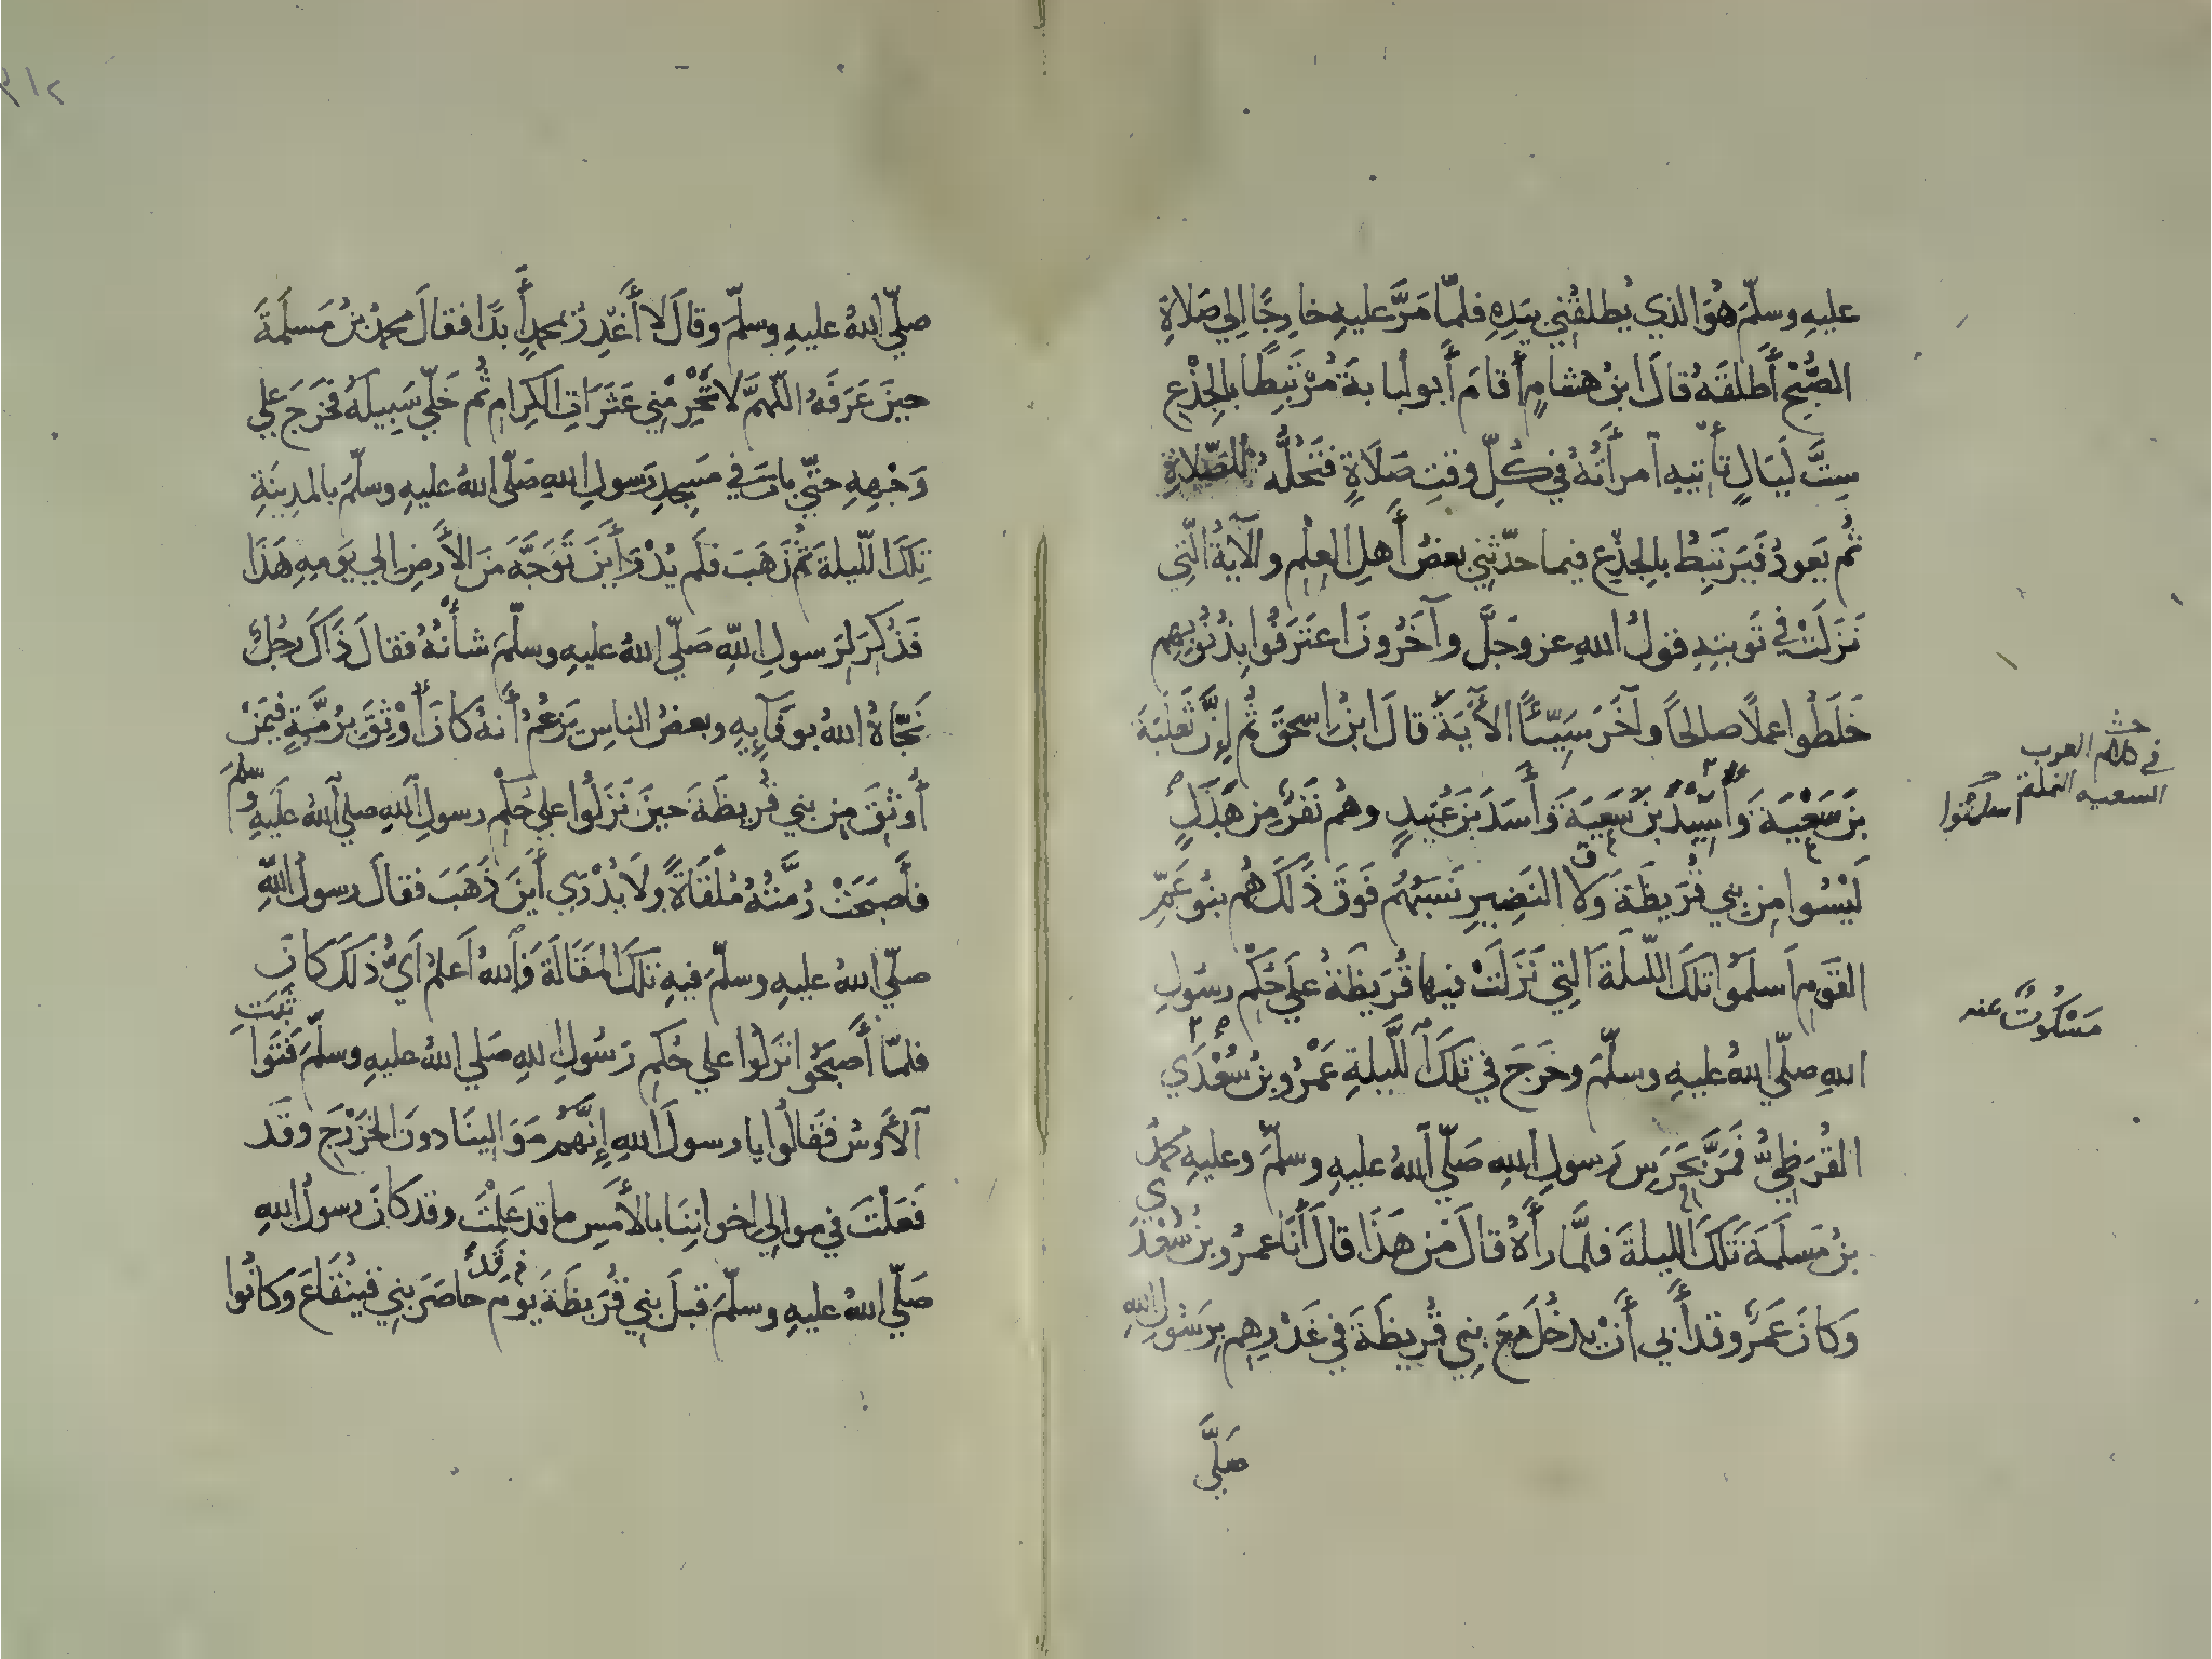 عليهِ وسلّمَ هُوَ الذي يُطلقُني بيَدِهِ فلمّا مَرَّ عليهِ خارِجًا اِلي صَلاةِ
الصُّبْحِ أَطلقَهُ قالَ ابنُ هشامٍ أَقامَ أَبو لبابةَ مُرْتَبِطًا بالجِذْعِ
سِتَّ لَيَالٍ تَأْتيهِ آمرأَتُهُ في كُلِّ وقتِ صَلَاةٍ فتَحُلُّهُ للصّلاةِ
ثُم يَعودُ فَيَرتَبِطُ بالجِذْعِ فيما حدّثني بعضُ أَهلِ العِلْمِ والآيةُ الّتِي
نَزَلَتْ في تَوبتِهِ قولُ اللهِ عز وجَلَّ وآخَرُونَ اعتَرَفُوا بِذُنُوبِهِم
خَلَطُوا عملًا صالحًا وآخَرَ سَيِّئًا الأَيَةَ قالَ ابنُ اسحقَ ثم إِنَّ ثَعلبَةَ
بنَ سَعْيَةَ وَأُسَيْدَ بنَ سَعيَةَ وَأَسَدَ بنَ عُبَيدٍ وهُم نَفَرٌ مِن هَدَلٍ
لَيْسُوا مِن بني قُرَيظَةَ وَلا النَضِيرِ نَسَبُهُم فَوقَ ذَلكَ هُم بنُو عَمِّ
القَومِ اَسلَمُوا تلكَ اللّيلةَ التِي نَزَلَتْ فيها قُرَيظَةُ علَي حُكْمِ رسُولِ
اللهِ صلّي اللهُ عليهِ وسلّمَ وخَرَجَ في تلكَ اللَّيلةِ عَمْرُو بنُ سُعْدَي
القُرَظِيُّ فمَرَّ بحَرَسِ رَسولِ اللهِ صَلّي اللهُ عليهِ وسلّمَ وعليهِ محمدُ
بنُ مَسلَمَةَ تلكَ الليلةَ فلمَّا رأَهُ قالَ مَن هَذَا قالَ أَنَا عمرُو بنُ سُعْدَي
وَكانَ عَمرٌو قد أَبي أَنْ يدخُلَ مَعَ بني قُريظَةَ في غَدْرِهِم بِرَسُولِ اللهِ
صَلَّي
في كلام العرب
مَسْكُوتٌ عنه
صلّي اللهُ عليهِ وسلّمَ وقالَ لا أَغْدِرُ بمحمدٍ أَبدًا فقالَ محمدُ بنُ مَسلَمةَ
حينَ عَرَفَهُ اللّهمَّ لا تَحْرِمْنِي عَثَرَاتِ الكِرَامِ ثُم خَلّي سَبِيلَهُ فخَرَجَ علي
وَجْهِهِ حتّي باتَ في مَسجِدِ رَسولِ اللهِ صَلّي اللهُ عليهِ وسلّمَ بالمدِينَةِ
تِلكَ الّليلةَ ثُم ذَهَبَ فلَم يُدْرَ أَينَ تَوَجَّهَ مِنَ الأَرضِ الي يَومِهِ هَذَا
فَذُكِرَ لرَسولِ اللّهِ صَلّي اللهُ عليهِ وسلّمَ شأْنُهُ فقالَ ذَاكَ رجُلٌ
نَجّاهُ اللهُ بوَفَآئِهِ وبعضُ الناسِ يَزعُمُ أَنهُ كانَ أُوْثِقَ بِرُمَّةٍ فيمَنْ
أُوثِقَ مِن بني قُريظَةَ حينَ نَزَلُوا علي حُكْمِ رسولِ اللهِ صلي اللهُ عَلَيهِ وسلمَ
فأَصبَحَتْ رُمَّتُهُ مُلْقَاةً وِلَا يُدْرَي أَينَ ذَهَبَ فقالَ رسولُ اللّهِ
صلّي اللهُ عليهِ وسلّمَ فيهِ تلكَ المقَالَةَ فَاللهُ اَعلمُ اَيُّ ذَلكَ كانَ
فلمّا أَصبَحُوا نَزَلُوا علي حُكمِ رَسُولِ اللهِ صَلي اللهُ عليهِ وسلّمَ فَتَوَاثَبَتِ
الأَوسُ فقَالُوا يا رسولَ اللهِ إِنَّهُم مَوَالينَا دونَ الخَزْرَجِ وقَد
فَعَلْتَ في موالِي اخواننِنَا بالأَمسِ ما قد عَلِمْتَ وقد كانَ رسولُ اللهِ
صَلّي اللهُ عليهِ وسلّمَ قبلَ بني قُرَيظَةَ يومَ قَد حاصَرَ بنِي قَينُقَاعَ وَكانُوا